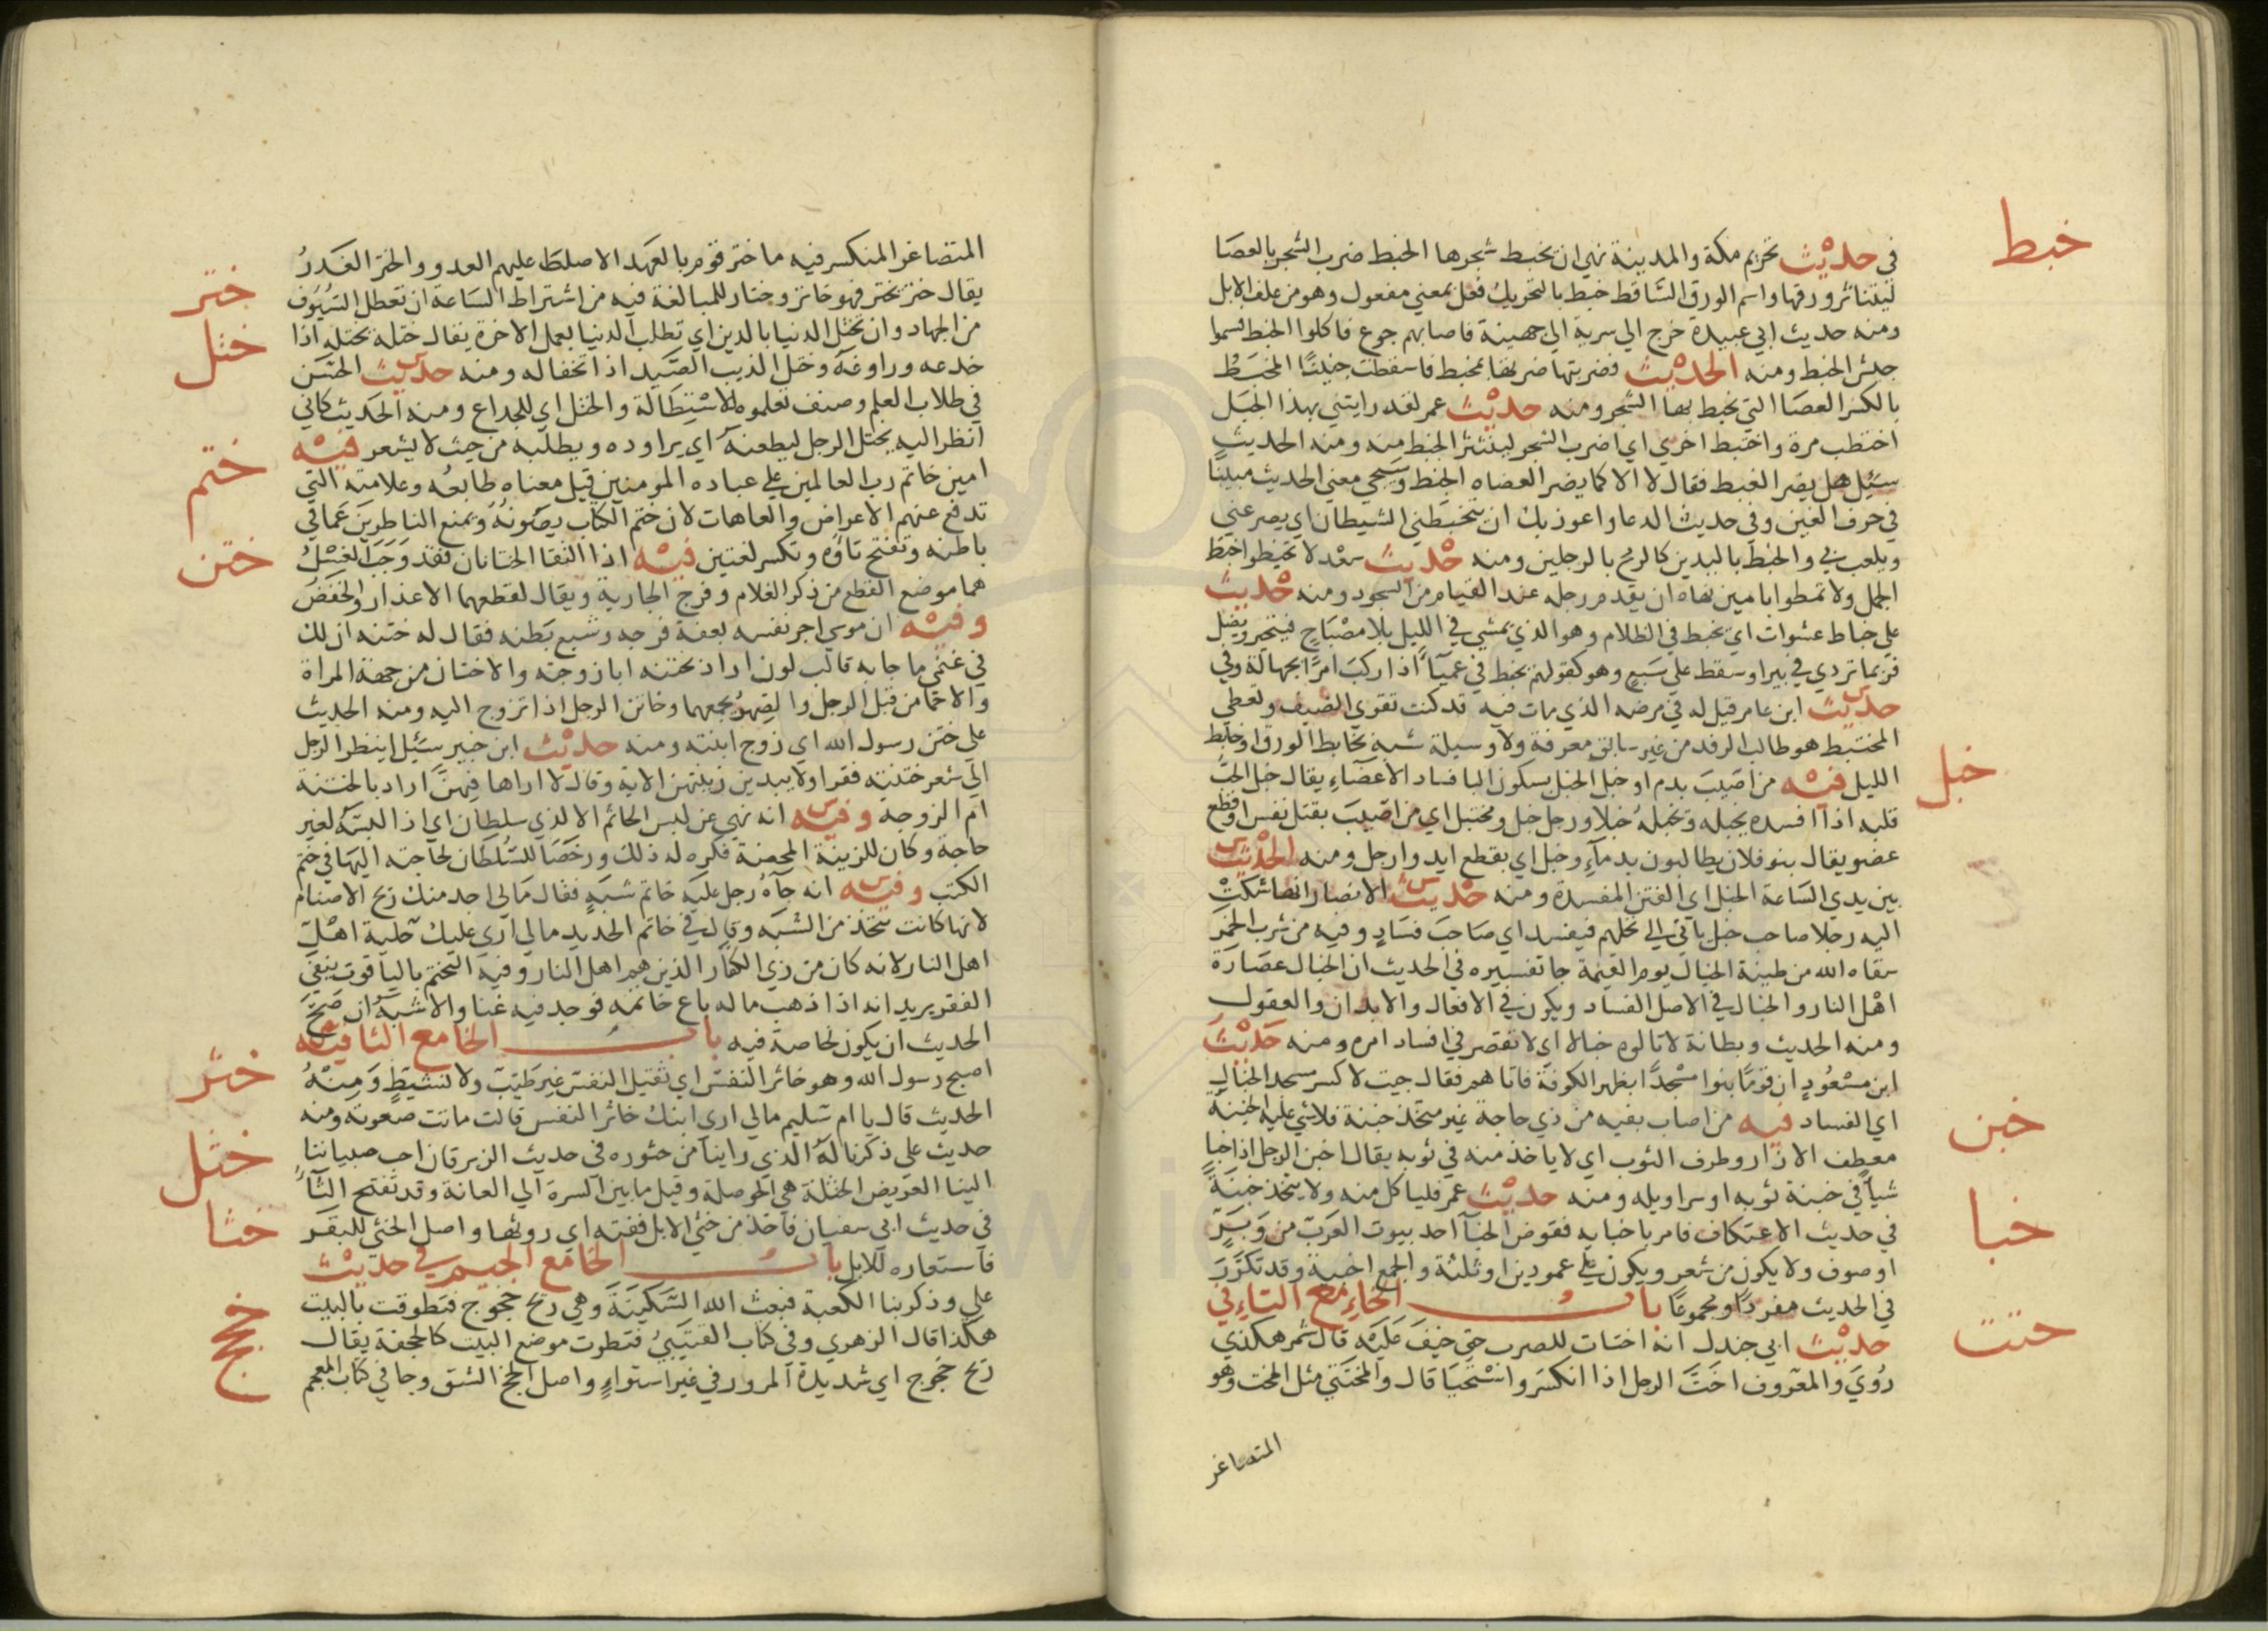 خبط
في حديث تحريم مكة والمدينة نهي ان يخبط شجرها الخبط ضرب الشجر بالعصَا
ليتناثر ورقها واسم الورق الساقط خبط بالتحريك فعل بمعني مفعول وهو من علف الابل
ومنه حديث ابي عبيدة خرج الي سرية الي جهينة فاصابهم جوع فاكلوا الخبط فسموا
جيش الخبط ومنه الحديث فضربتها ضرتها بمخبط فاسقطت جنينًا المخبَطُ
بالكسر العصَا التي يخبط بها الشجر ومنه حديث عمر لقد رايتني بهذا الجبَل
احتطب مرة واختبط اخري اي اضرب الشجر لينتثر الخبط منه ومنه الحديث
سئِل هل يضر الغبط فقال لا الا كما يضر العضاه الخبط وسيجي معني الحديث مبينًا
في حرف الغين وفي حديث الدعا واعوذ بك ان يتخبطني الشيطان اي يصرعني
ويلعب بي والخبط باليدين كالرمح بالرجلين ومنه حديث سعْد لا تخبطوا خبط
الجمل ولا تمطوا بامين نهاه ان يقدم رجله عند القيام من السجود ومنه حديث
علي خباط عشوات اي يخبط في الظلام وهو الذي يمشي في الليل بلا مصْبَاحٍ فيتحير ويضل
فربما تردي في بير او سقط علي سَبعٍ وهو كقولهم يخبط في عميآ اذا ركبَ امرًا بجهالة وفي
حديث ابن عامر قيل له في مرضه الذي مات فيه قد كنت تقري الضيف وتعطي
المختبط هو طالب الرفد من غير سابق معرفة ولا وسيلة شبه بخابط الورق او خابط
خبل
الليل فيه من اصَيبَ بدم او خبل الخبل بسكون البا فساد الاعضَاءِ يقال خبل الحبُ
قلبه اذا افسده يخبله ويخبلهُ خبلا ورجل خبل ومختبل اي من اصَيبَ بقتل نفس او قطع
عضو يقال بنو فلان يطالبون بدمآءٍ وخبل اي بقطع ايد وارجل ومنه الحديث
بين يدي السَاعة الخبل اي الفتن المفسدة ومنه حديث الانصار انها شكتْ
اليه رجلا صاحب خبل ياتي الي نخلهم فيفسد اي صَاحبَ فسَادٍ وفيه من شرب الخمَر
سقاه الله من طينة الخبال يوم القيمة جا تفسيره في الحديث ان الخبال عصَارة
اهْل النار والخبال في الاصل الفسَاد ويكون في الافعال والابدان والعقول
ومنه الحديث وبطانة لا تالوه خبالا اي لا تقصر في افساد امره ومنه حَديْث
ابن مسْعُودٍ ان قومًا بنوا مسْجدًا بظهر الكوفة فاتاهم فقال جيت لاكسر مسجد الخبال
خبن
اي الفساد فيه من اصاب بفيه من ذي حاجة غير متخذ خبنة فلا شي عليه الخبنةُ
معطف الازار وطرف الثوب اي لا ياخذ منه في ثوبه يقال اخبن الرجل اذا خبا
شيأ في خبنة ثوبه او سراويله ومنه حديث عمر فلياكل منه ولا يتخذ خبنَةً
خبا
في حديث الاعتكاف فامر باخبايه فقوض الخبآ احد بيوت العرَب من وَبَرٍ
او صوف ولا يكون من شعر ويكون علي عمودين او ثلثة والجمع اخبية وقد تكرَّرَ
في الحديث مفردًا ومجموعًا باب الخَاءِ مع التَاءِ في
ختت
حديث ابي جندل انه اختات للضرب حتي خيفَ عَليْه قال شمر هكذي
رُويَ والمعرُوف اخَتَّ الرجل اذا انكسرَ واسْتحْيَا قال والمختتي مثل المخت وهو
المتصاغر
المتصاغر المنكسر فيه ما ختر قوم بالعَهد الا صلطَ عليهم العدو والختر الغَدرُ
ختر
يقال ختر يختر فهو خاتر وختار للمبالغة فيه من اشتراط السَاعة ان تعطل السُيُوف
ختل
من الجهاد وان تختل الدنيا بالدين اي تطلب الدنيا بعمل الاخرة يقال ختله يختله اذا
خدعه وراوغهُ وختل الذيب الصَيد اذا تخفا له ومنه حديث الحسَن
في طلاب العلم وصنف تعلموه للاسْتِطَالة والختل اي للخداع ومنه الحديث كاني
انظر اليه يختل الرجل ليطعنهُ اي يراوده ويطلبه من حيث لا يشعر فيْه
ختم
امين خاتم رب العالمين علي عباده المومنين قيل معناه طابعُه وعلامته التي
تدفع عنهم الاعراض والعاهات لان ختم الكتاب يصَونهُ ويمنع الناطرينَ عمَا في
ختن
باطنه وتفتح تاؤه وتكسر لغتين فيْه اذا التقا الختانان فقد وَجَبَ الغسْلُ
هما موضع القطع من ذكر الغلام وفرج الجارية ويقال لقطعهما الاعذار والخَفضُ
وفيْه ان موسي اجر نفسه بعفة فرجه وشبع بَطنه فقال له ختنه ان لك
في غنمي ما جاءت به قالب لون اراد بختنه ابا زوجته والاختان من جهة المراة
والاحما من قبل الرجل والصِهرُ يجمعهما وخاتن الرجل اذا تزوج اليه ومنه الحديث
علي ختن رسول الله اي زوج ابنته ومنه حديْث ابن جبير سئِل اينظر الرجل
الي شعر ختنته فقرا ولا يبدين زينتهن الاية وقال لا اراها فيهنَّ اراد بالختنة
ام الزوجه وفيه انه نهي عن لبس الخاتم الا لذي سلطَان اي اذا لبسَهُ لغير
حاجة وكان للزينة المحضة فكره له ذلك ورخصَا للسُلطَان لحاجته اليهَا في ختم
الكتب وفيه انه جآهُ رجل عليه خاتم شبَهٍ فقال مَا لي اجد منك ريح الاصنام
لانها كانت تتخذ من الشبَه وقال في خاتم الحديد ما لي اري عليك حلية اهْل
اهل النار لانه كان من زي الكفار الذين هم اهل النار وفيه التختم بالياقوت ينفي
الفقر يريد انه اذا ذهب ماله باع خاتمه فوجد فيه غنا والاشبَهُ ان صَحَّ
الحديث ان يكون لخاصة فيه باب الخَا مع الثا فيْه
خثر
اصبح رسول الله وهو خاثر النفسْ اي ثقيل النفس غير طَيّب ولا نشيطٍ وَمِنْهُ
الحديث قال يا ام سَليم ما لي اري ابنك خاثر النفس قالت ماتت صعوته ومنه
خثل
حديث علي ذكرنا لهُ الذي راينا من خثوره في حديث الزبرقان احب صبياننا
الينا العَريض الخثلة هي الحوصلة وقيل ما بين السرة الي العانة وقد تفتح الثآءُ
خثا
في حديث ابي سفيان فاخذ من خثي الابل ففته اي روثها واصل الخثي للبقر
فاستعاره للابل باب الخَا مع الجيم في حديث
خجج
علي وذكر بنا الكعبة فبعث الله السَكينَةَ وهي ريح خجوج فتطوقت بالبيت
هكذا قال الزهري وفي كتاب القتَيبيُ فتطوت موضع البيت كالحجفة يقال
ريح خجوج اي شديدة المرور في غير استواءٍ واصل الخج الشق وجا في كتاب المعجم